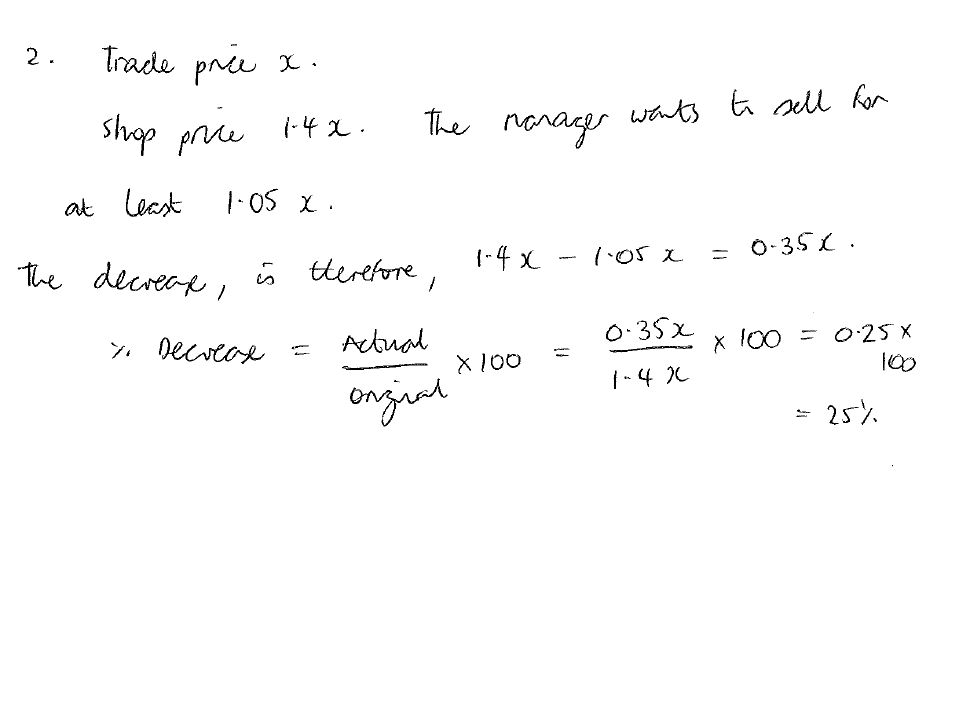 2. Trade price x.
shop price 1.4x. The manager wants to sell for
at least 1.05 x.
The decrease, is therefore, 1.4x - 1.05x = 0.35x.
% Decrease = Actual/original × 100 = 0.35x/1.4x × 100 = 0.25 × 100
= 25%